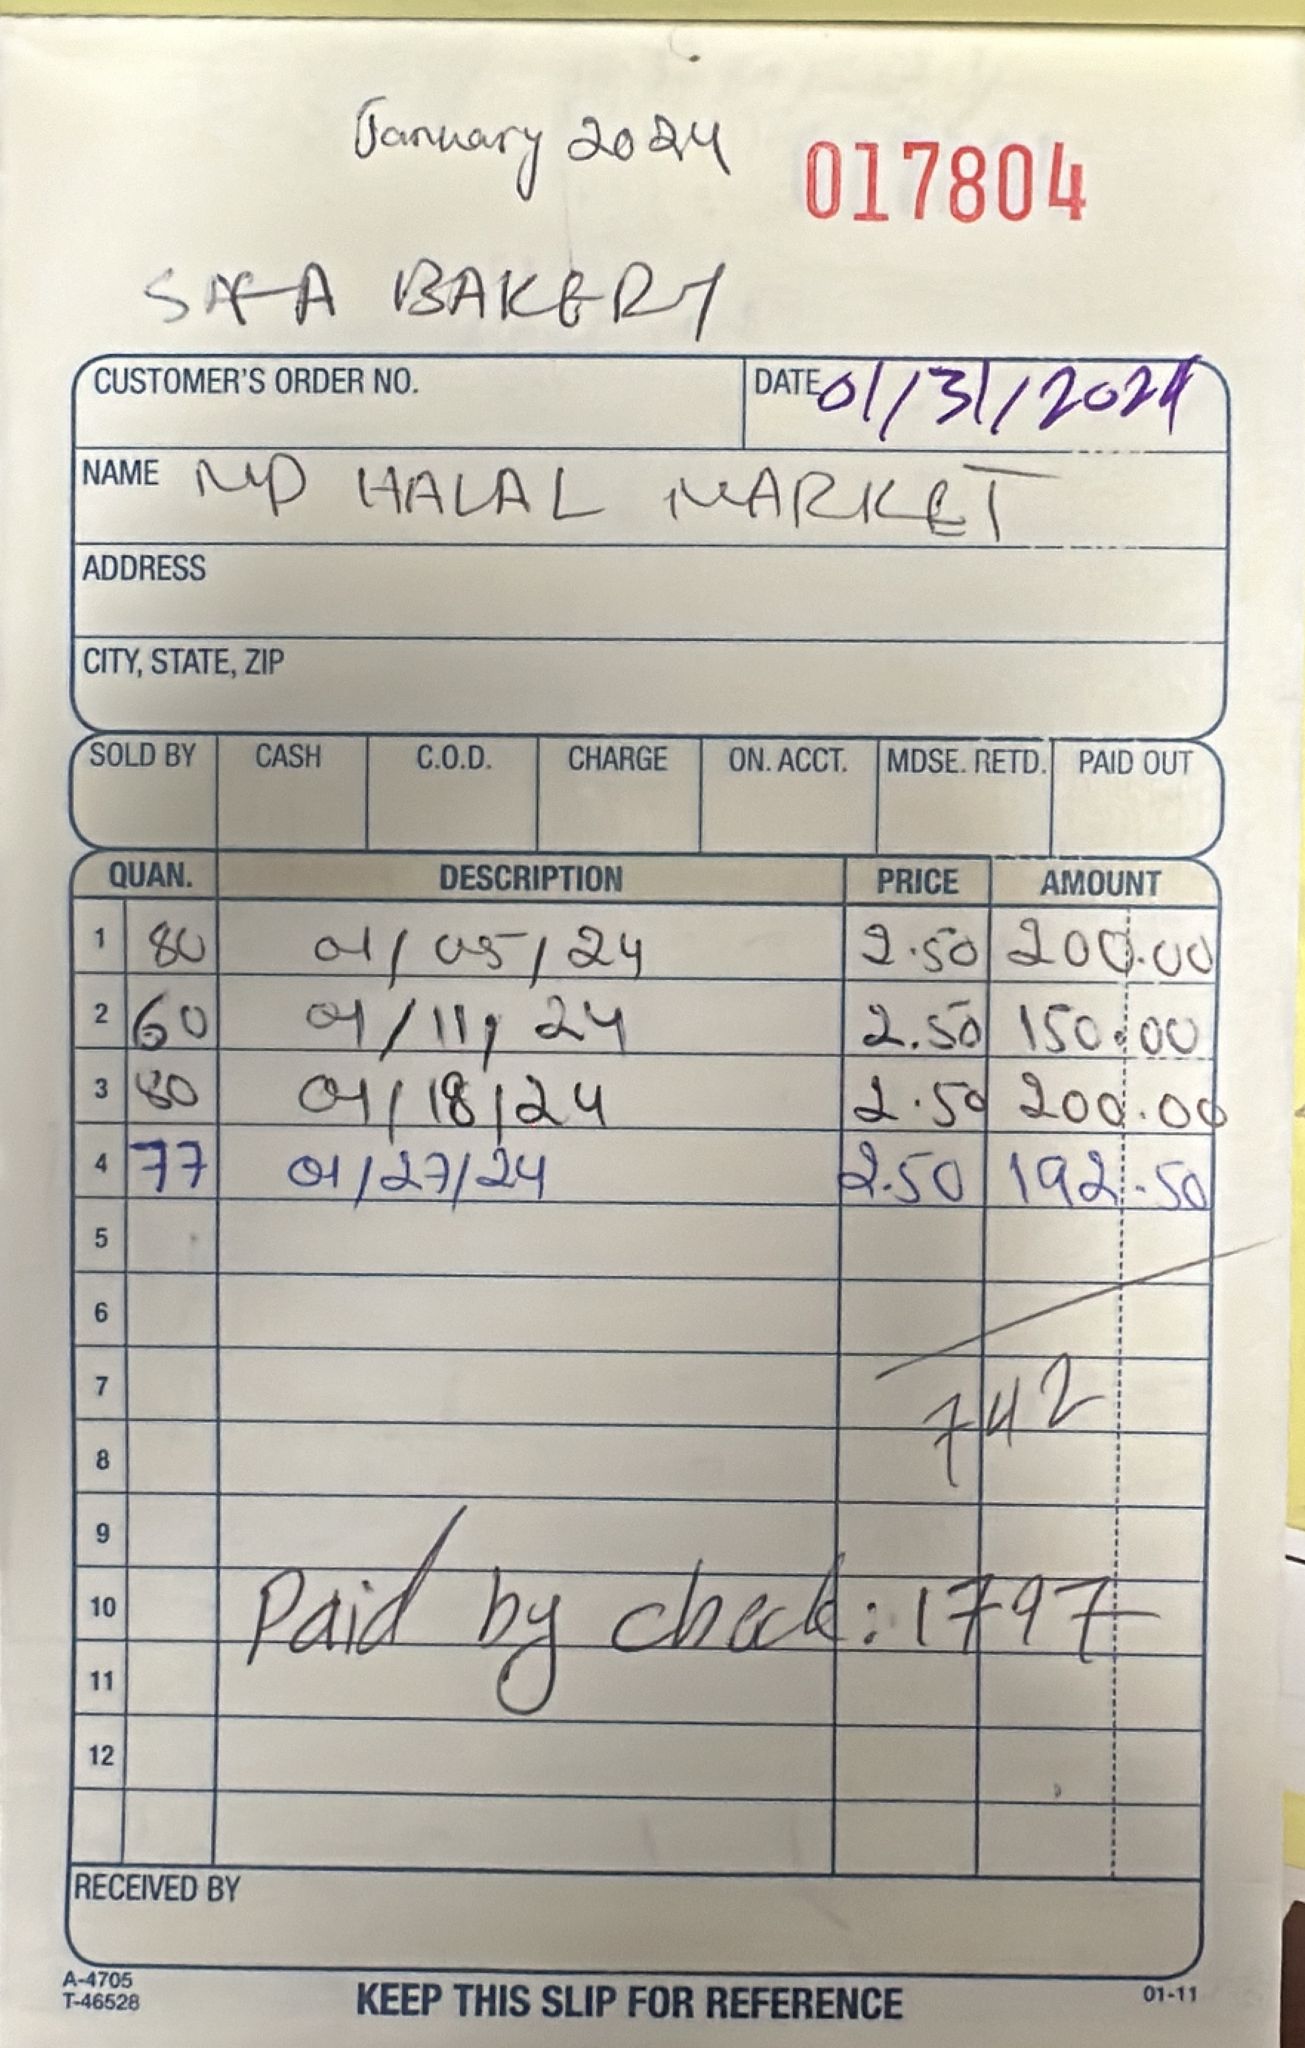 January 2024
017804
SAFA BAKERY
CUSTOMER'S ORDER NO. DATE 01/31/2024
NAME MD HALAL MARKET
ADDRESS
CITY, STATE, ZIP
SOLD BY CASH C.O.D. CHARGE ON. ACCT. MDSE. RETD. PAID OUT
QUAN. DESCRIPTION PRICE AMOUNT
1 80 01/05/24 2.50 200.00
2 60 01/11/24 2.50 150.00
3 80 01/18/24 2.50 200.00
4 77 01/27/24 2.50 192.50
5
6
7 742
8
9
10 Paid by check: 1797
11
12
RECEIVED BY
A-4705
T-46528
KEEP THIS SLIP FOR REFERENCE
01-11